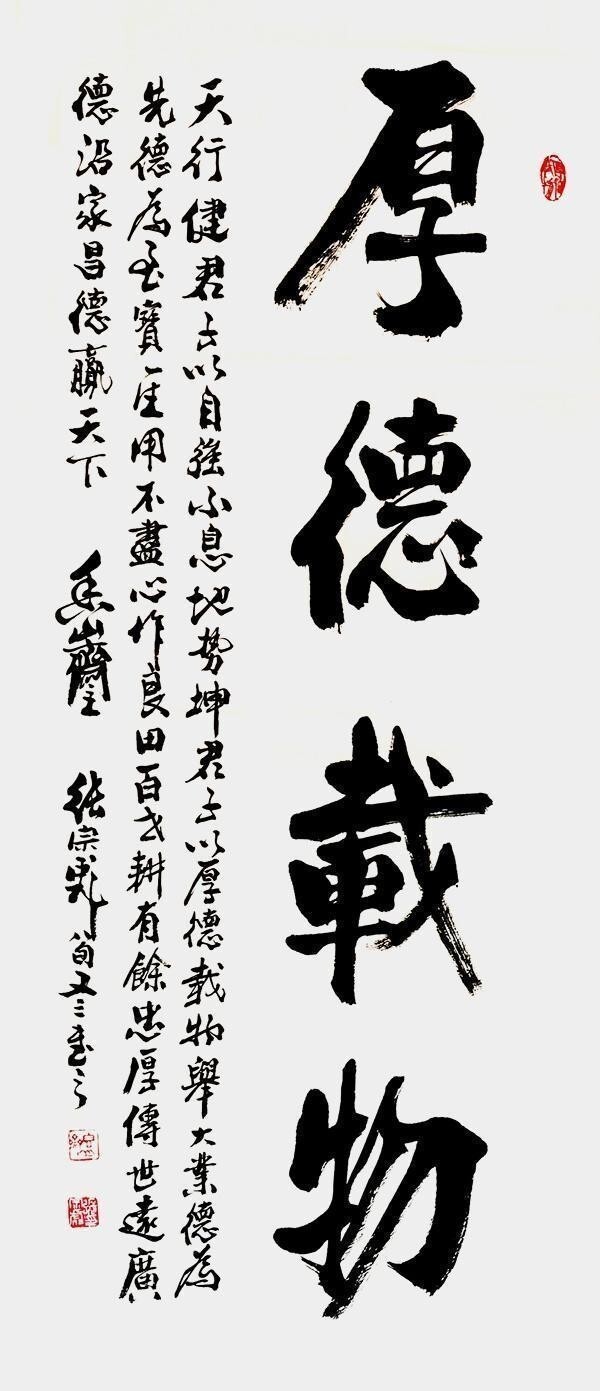 厚德載物
天行健君子以自强不息地势坤君子以厚德載物舉大業德為
先德為至寶一生用不盡心作良田百世耕有餘忠厚傳世遠廣
德沿家昌德贏天下
張宗